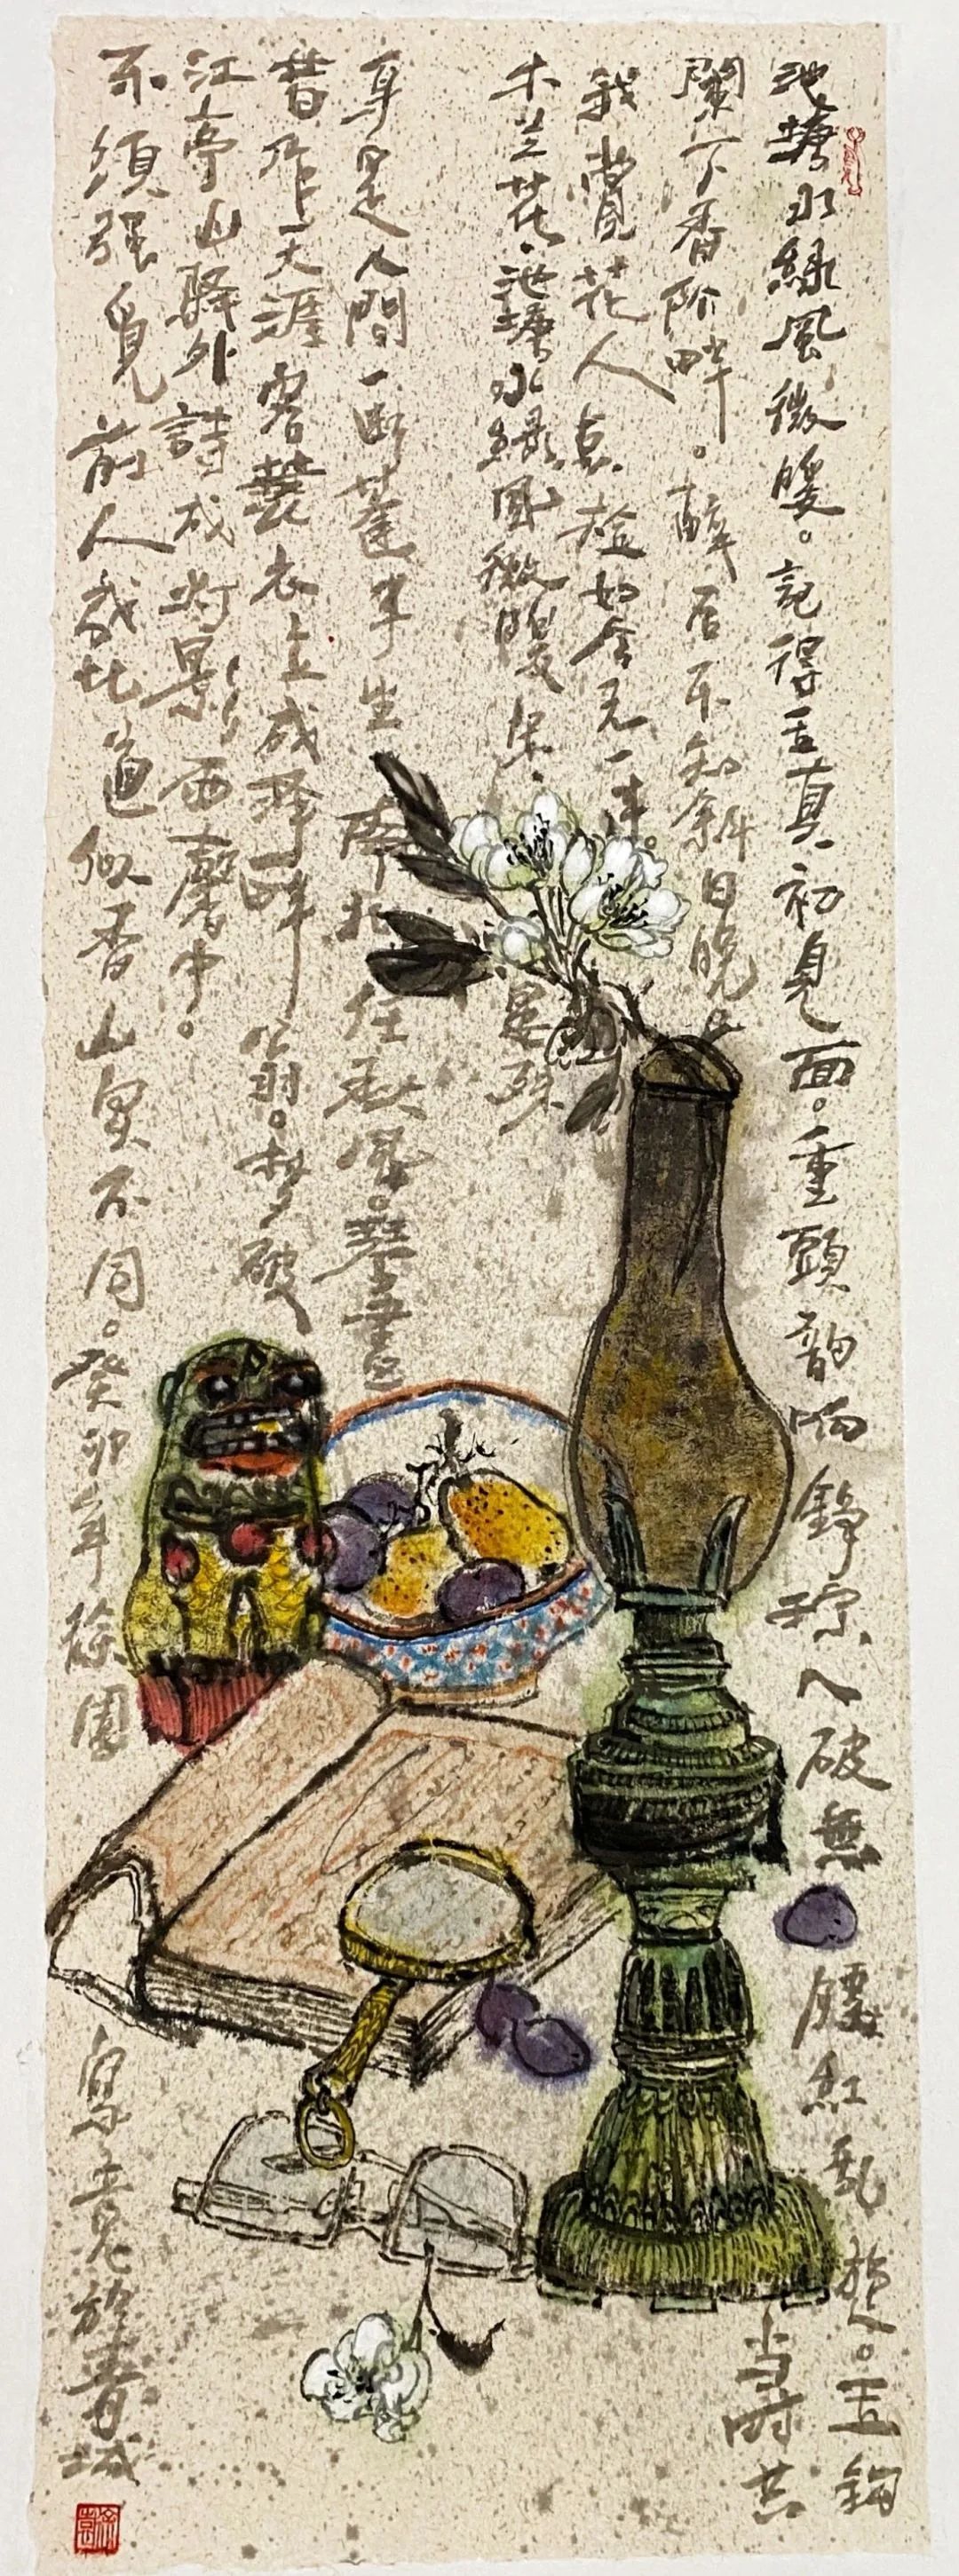 池塘水緑風微暖。記得玉真初見面。重頭韵响錚琮入破無腰紅亂旋。玉鈎
闌下香階畔。醉后不知斜日晚。當時共
我賞花人点检如今无一半。
木兰花·池塘水緑風微暖 宋·晏殊
身是人間一断蓬半生南北任秋風。琴書
昔作天涯客蓑衣立成澤畔翁。梦破
江亭山驛外詩成灯影雨聲中。
不須强覓前人我比道似香山實不同。癸卯年徐園
於青城